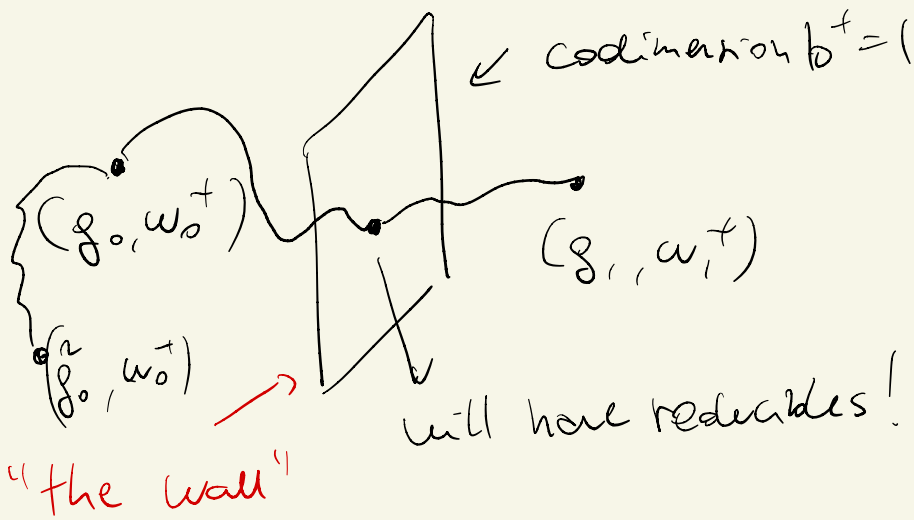 codimension b⁺ = 1
(g₀, ω₀⁺)
(g₁, ω₁⁺)
(g̃₀, ω₀⁺)
will have reducibles!
"the wall"